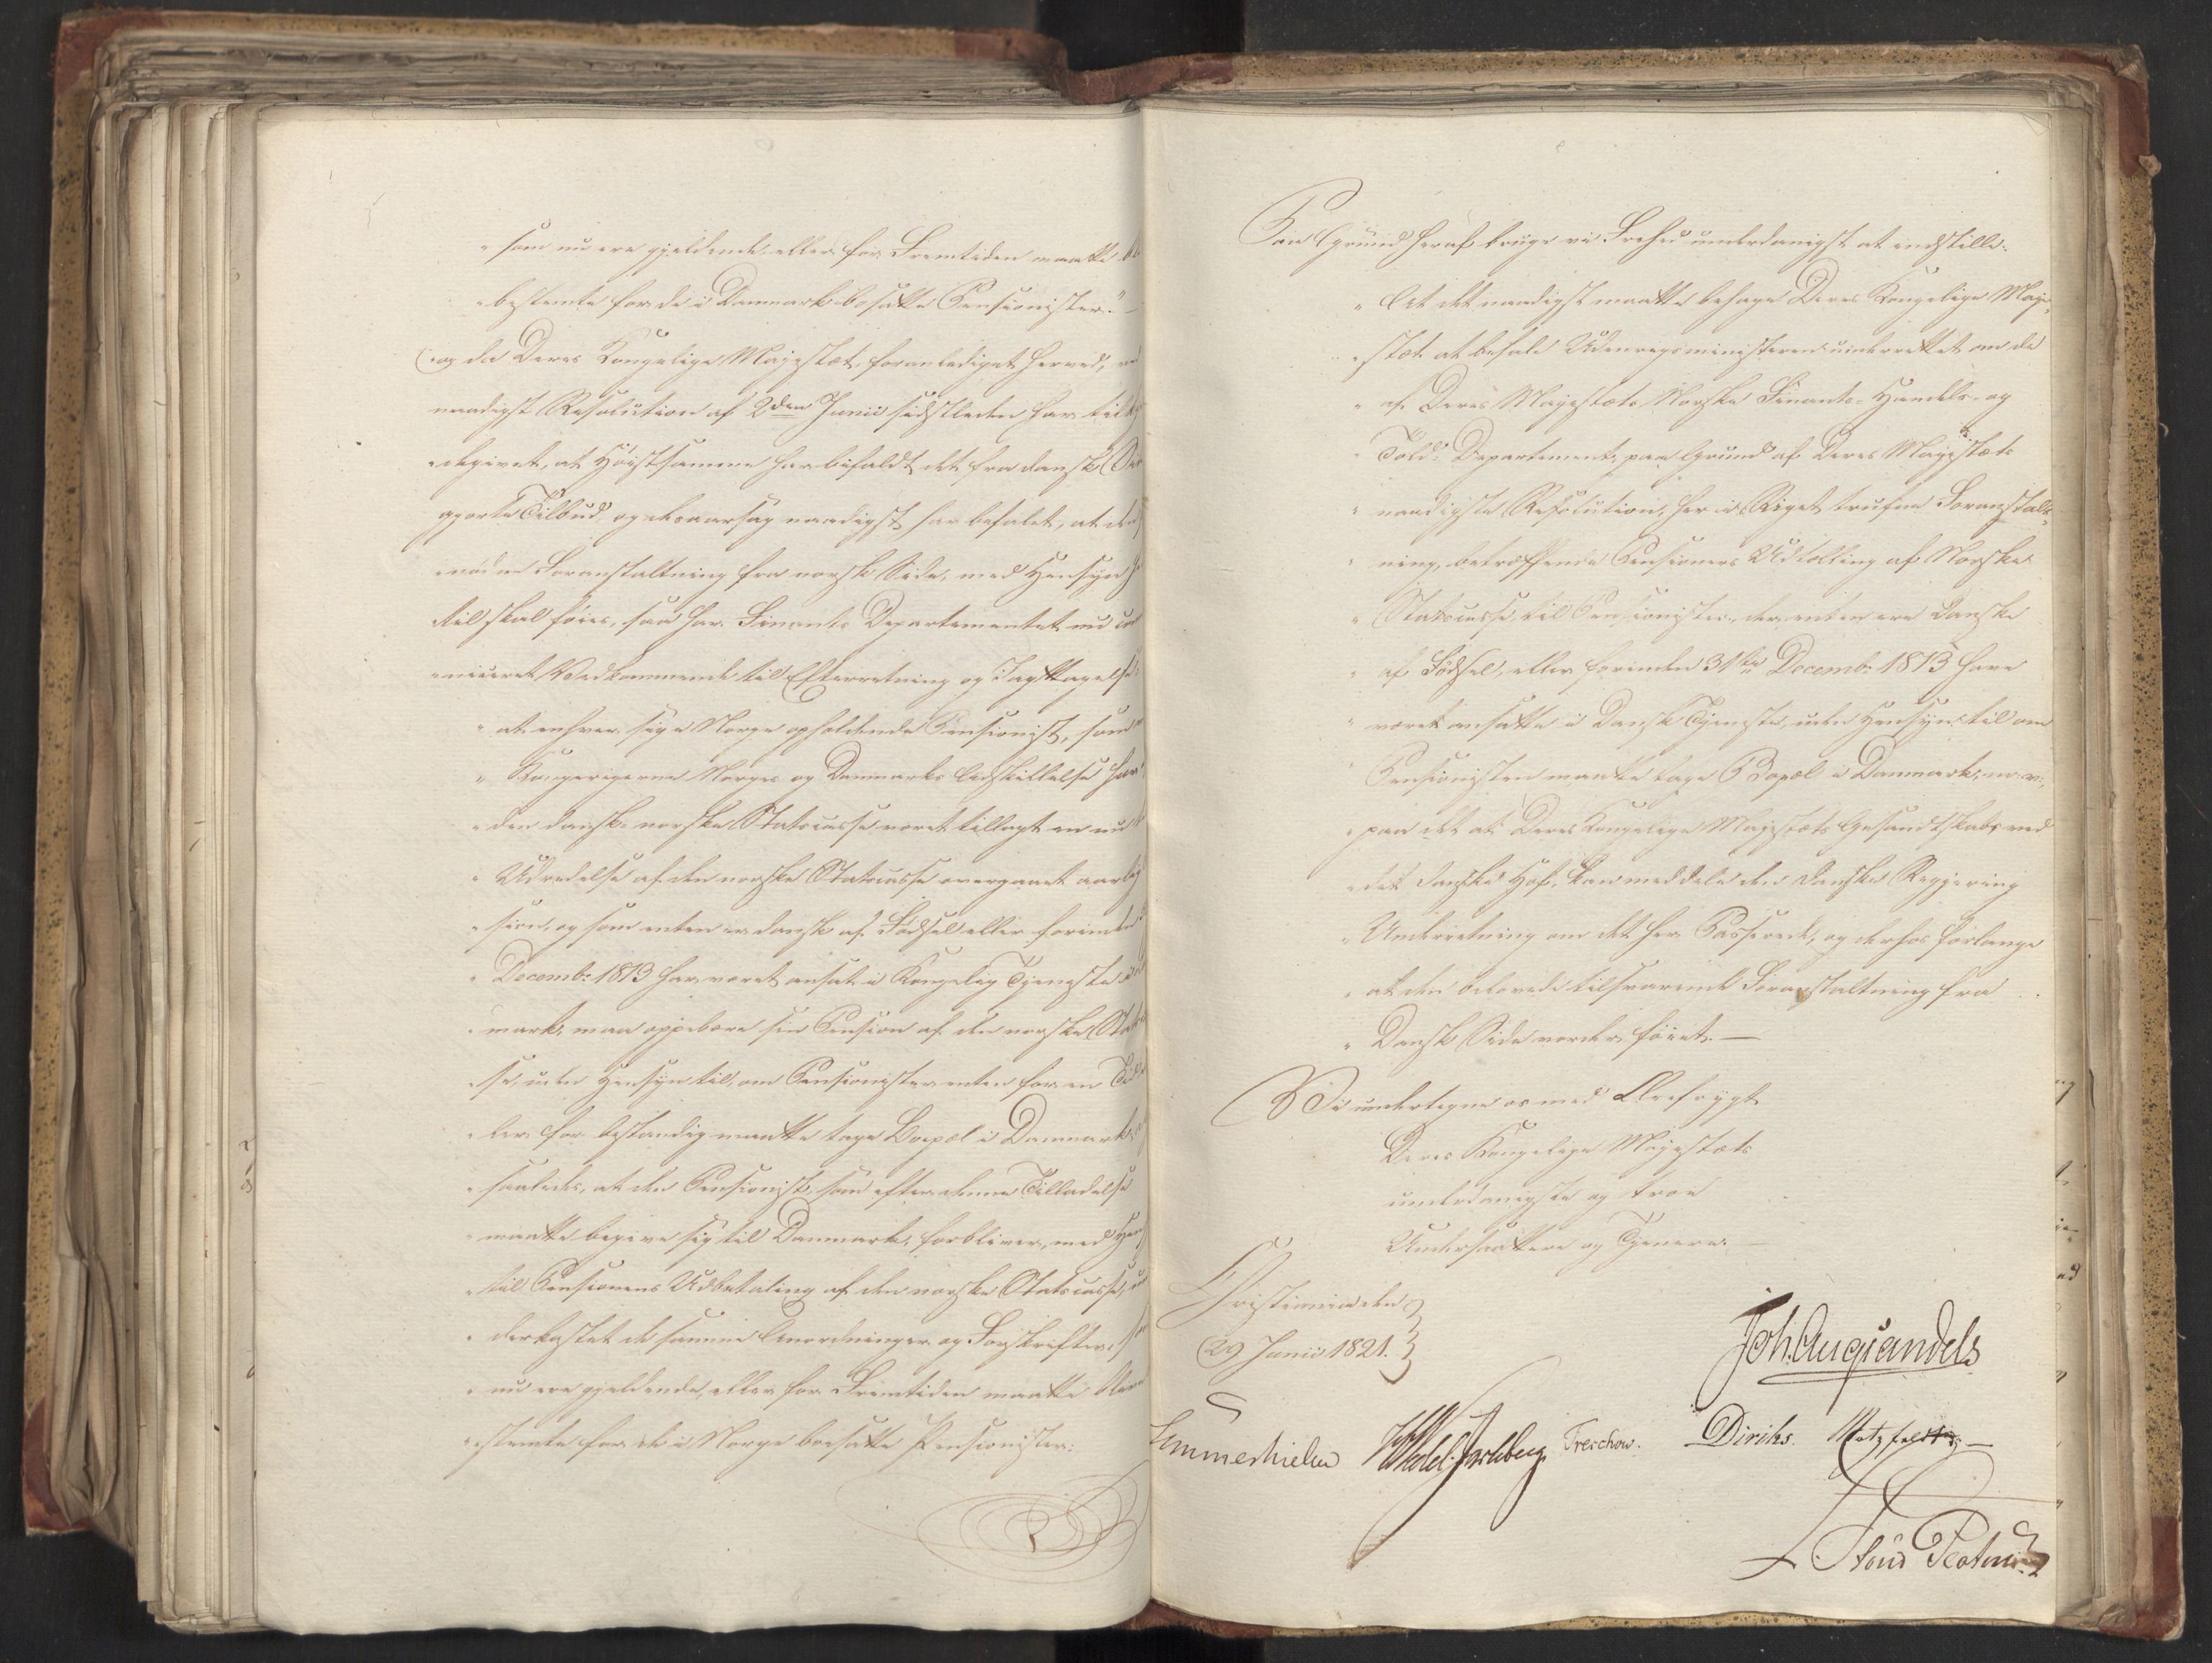 " som nu ere gjeldende, eller for Fremtiden maatte
" bestemte for de i Danmark bosatte Pensionister." —
og da Deres Kongelige Majestæt, foranlediget herved,
naadigst Resolution af 2den Junii sidstleden har
degivet, at Høistsamme har bifaldt det fra dansk
gjorte Tilbud, og desaarsag naadigst har befalet, at
Foranstaltning fra norsk Side, med Hensyn
til skal føies, saa har Finants Departementet nu
Vedkommende til Efterretning og Iagttagelse:
" at enhver sig i Norge opholdende Pensionist, som
" Kongerigerne Norges og Danmarks Adskillelse har
" den dansk-norske Statscasse været tillagt en nu
" Udredelse af den norske Statscasse overgaaet aarlig
" sion, og som enten er dansk af Fødsel eller forinden
" Decembr 1813 har været ansat i Kongelig Tjeneste i
" mark, maa oppebære sin Pension af den norske
" se, uden Hensyn til, om Pensionisten enten for en Tid
" ler for bestandig maatte tage Boepæl i Danmark,
" saaledes, at den Pensionist, som efter denne Tilladelse
" maatte begive sig til Danmark, forbliver, med
" til Pensionens Udbetaling af den norske Statscasse,
" derkastet de samme Anordninger og Forskrifter,
" nu ere gjeldende, eller for Fremtiden maatte
" stemte for de i Norge bosatte Pensionister.
Paa Grund heraf bruge vi Frihed underdanigst at indstille:
" At det naadigst maatte behage Deres Kongelige Maje-
" stæt at befale Udenrigsministeren underrettet om de
" af Deres Majestæts Norske Finants- Handels- og
" Told- Departement, paa Grund af Deres Majestæts
" naadigste Resolution, her i Riget trufne Foranstalt-
" ning, betreffende Pensioners Udbetaling af Norske
" Statscasse til Pensionister, der enten ere Danske
" af Fødsel, eller forinden 31te Decembr 1813 have
" været ansatte i Dansk Tjeneste, uden Hensyn til om
" Pensionisten maatte tage Bopæl i Danmark,
" paa det at Deres Kongelige Majestæts Gesandtskab ved
" det Danske Hof, kan meddele den Danske Regjering
" Underretning om det her Passerede, og derhos forlange
" at den belovede tilsvarende Foranstaltning fra
" Dansk Side vorder føiet. —
Vi undertegne os med Ærefrygt
Deres Kongelige Majestæts
underdanigste og troe
Undersaattere og Tjenere.
Christiania den
29 Junii 1821.
Joh. Aug. Sandels
Sommerhielm Wedel Jarlsberg Treschow. Diriks. Motzfeldt